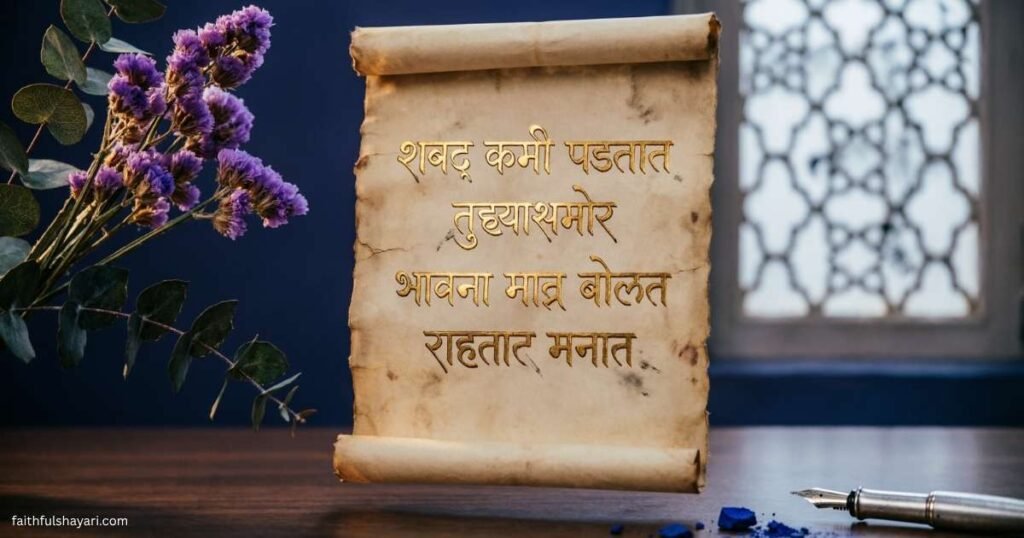 शबद् कमी पडतात
तुह्यासमोर
भावना मात्र बोलत
राहताट मनात
faithfulshayari.com